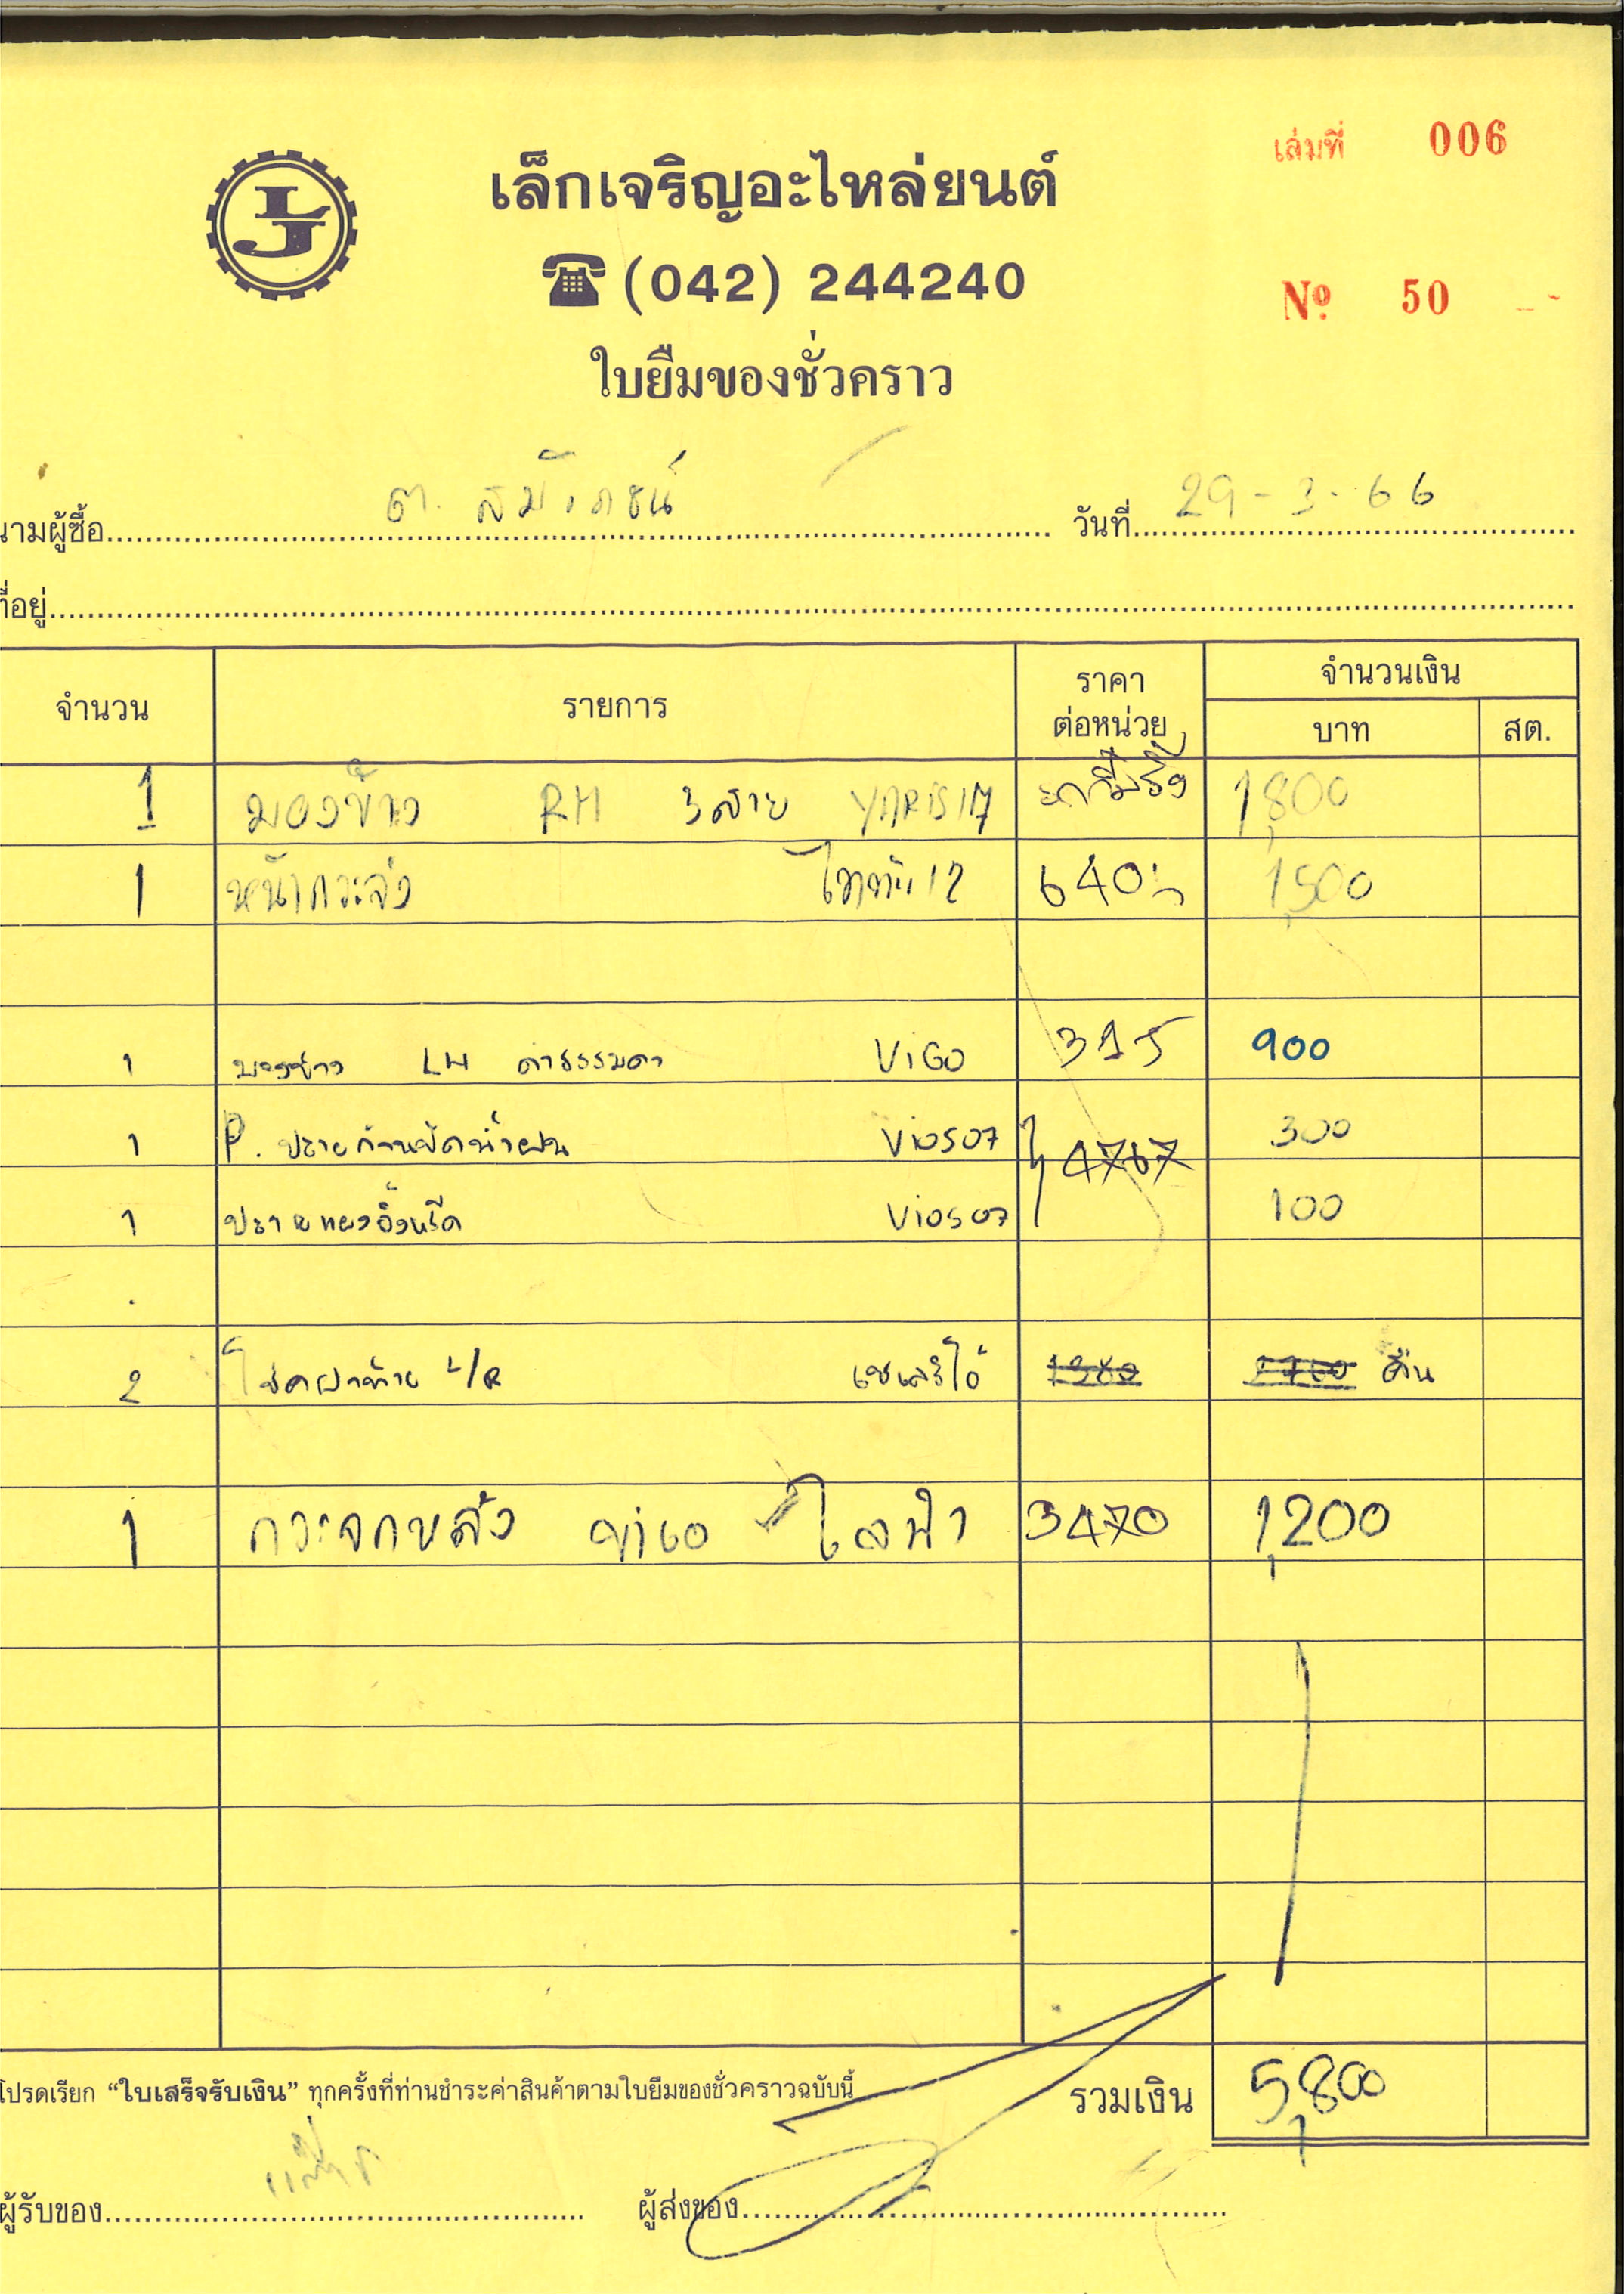 เล่มที่ 006
LJ
เล็กเจริญอะไหล่ยนต์
(042) 244240
Nº 50
ใบยืมของชั่วคราว
นามผู้ซื้อ ต. วันที่ 29-3-66
ที่อยู่
จำนวน รายการ ราคาต่อหน่วย จำนวนเงิน
บาท สต.
1 มองข้าง RH 3 สาย YARIS 17 1,800
1 หน้ากระจัง ไททัน 12 640 1,500
1 มองข้าง LH ดำธรรมดา ViGO 315 900
1 P. ปลายก้านปัดน้ำฝน Vios07 4767 300
1 ปลายแผงอิ้งหรีด Vios07 100
2 โช๊คฝาท้าย L/R เซเลริโอ้ คืน
1 กระจกหลัง ViGO ไลฟ้า 3470 1,200
โปรดเรียก “ใบเสร็จรับเงิน” ทุกครั้งที่ท่านชำระค่าสินค้าตามใบยืมของชั่วคราวฉบับนี้ รวมเงิน 5,800
ผู้รับของ ผู้ส่งของ